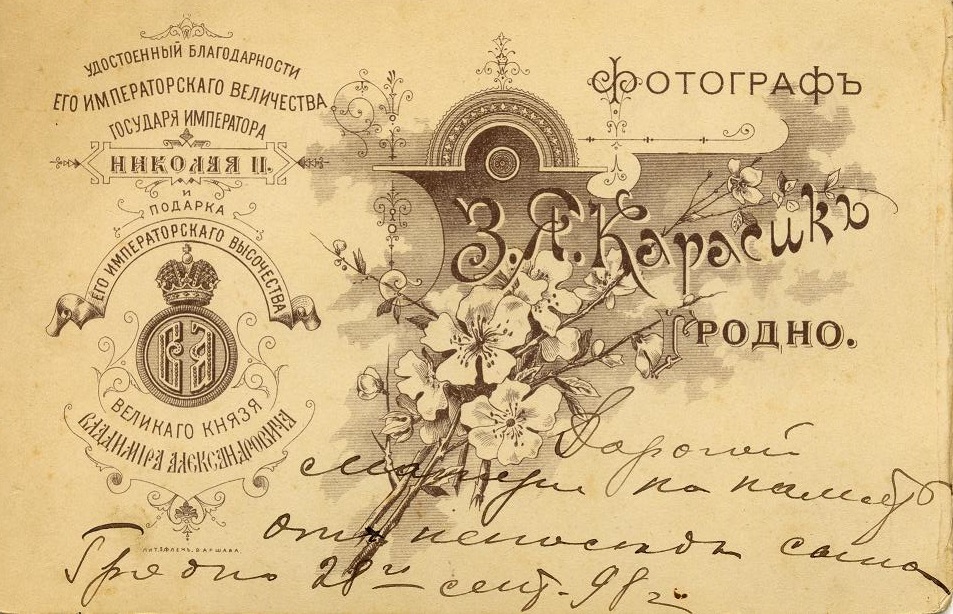 УДОСТОЕННЫЙ БЛАГОДАРНОСТИ
ЕГО ИМПЕРАТОРСКАГО ВЕЛИЧЕСТВА
ГОСУДАРЯ ИМПЕРАТОРА
НИКОЛАЯ II.
И
ПОДАРКА
ЕГО ИМПЕРАТОРСКАГО ВЫСОЧЕСТВА
ВА
ВЕЛИКАГО КНЯЗЯ
ВЛАДИМІРА АЛЕКСАНДРОВИЧА
ФОТОГРАФЪ
З.Я.Карасикъ
ГРОДНО.
Дорогой
матери на память
отъ сына
Гродно 28го сент. 98 г.
ЛИТ. ВАРШАВА.